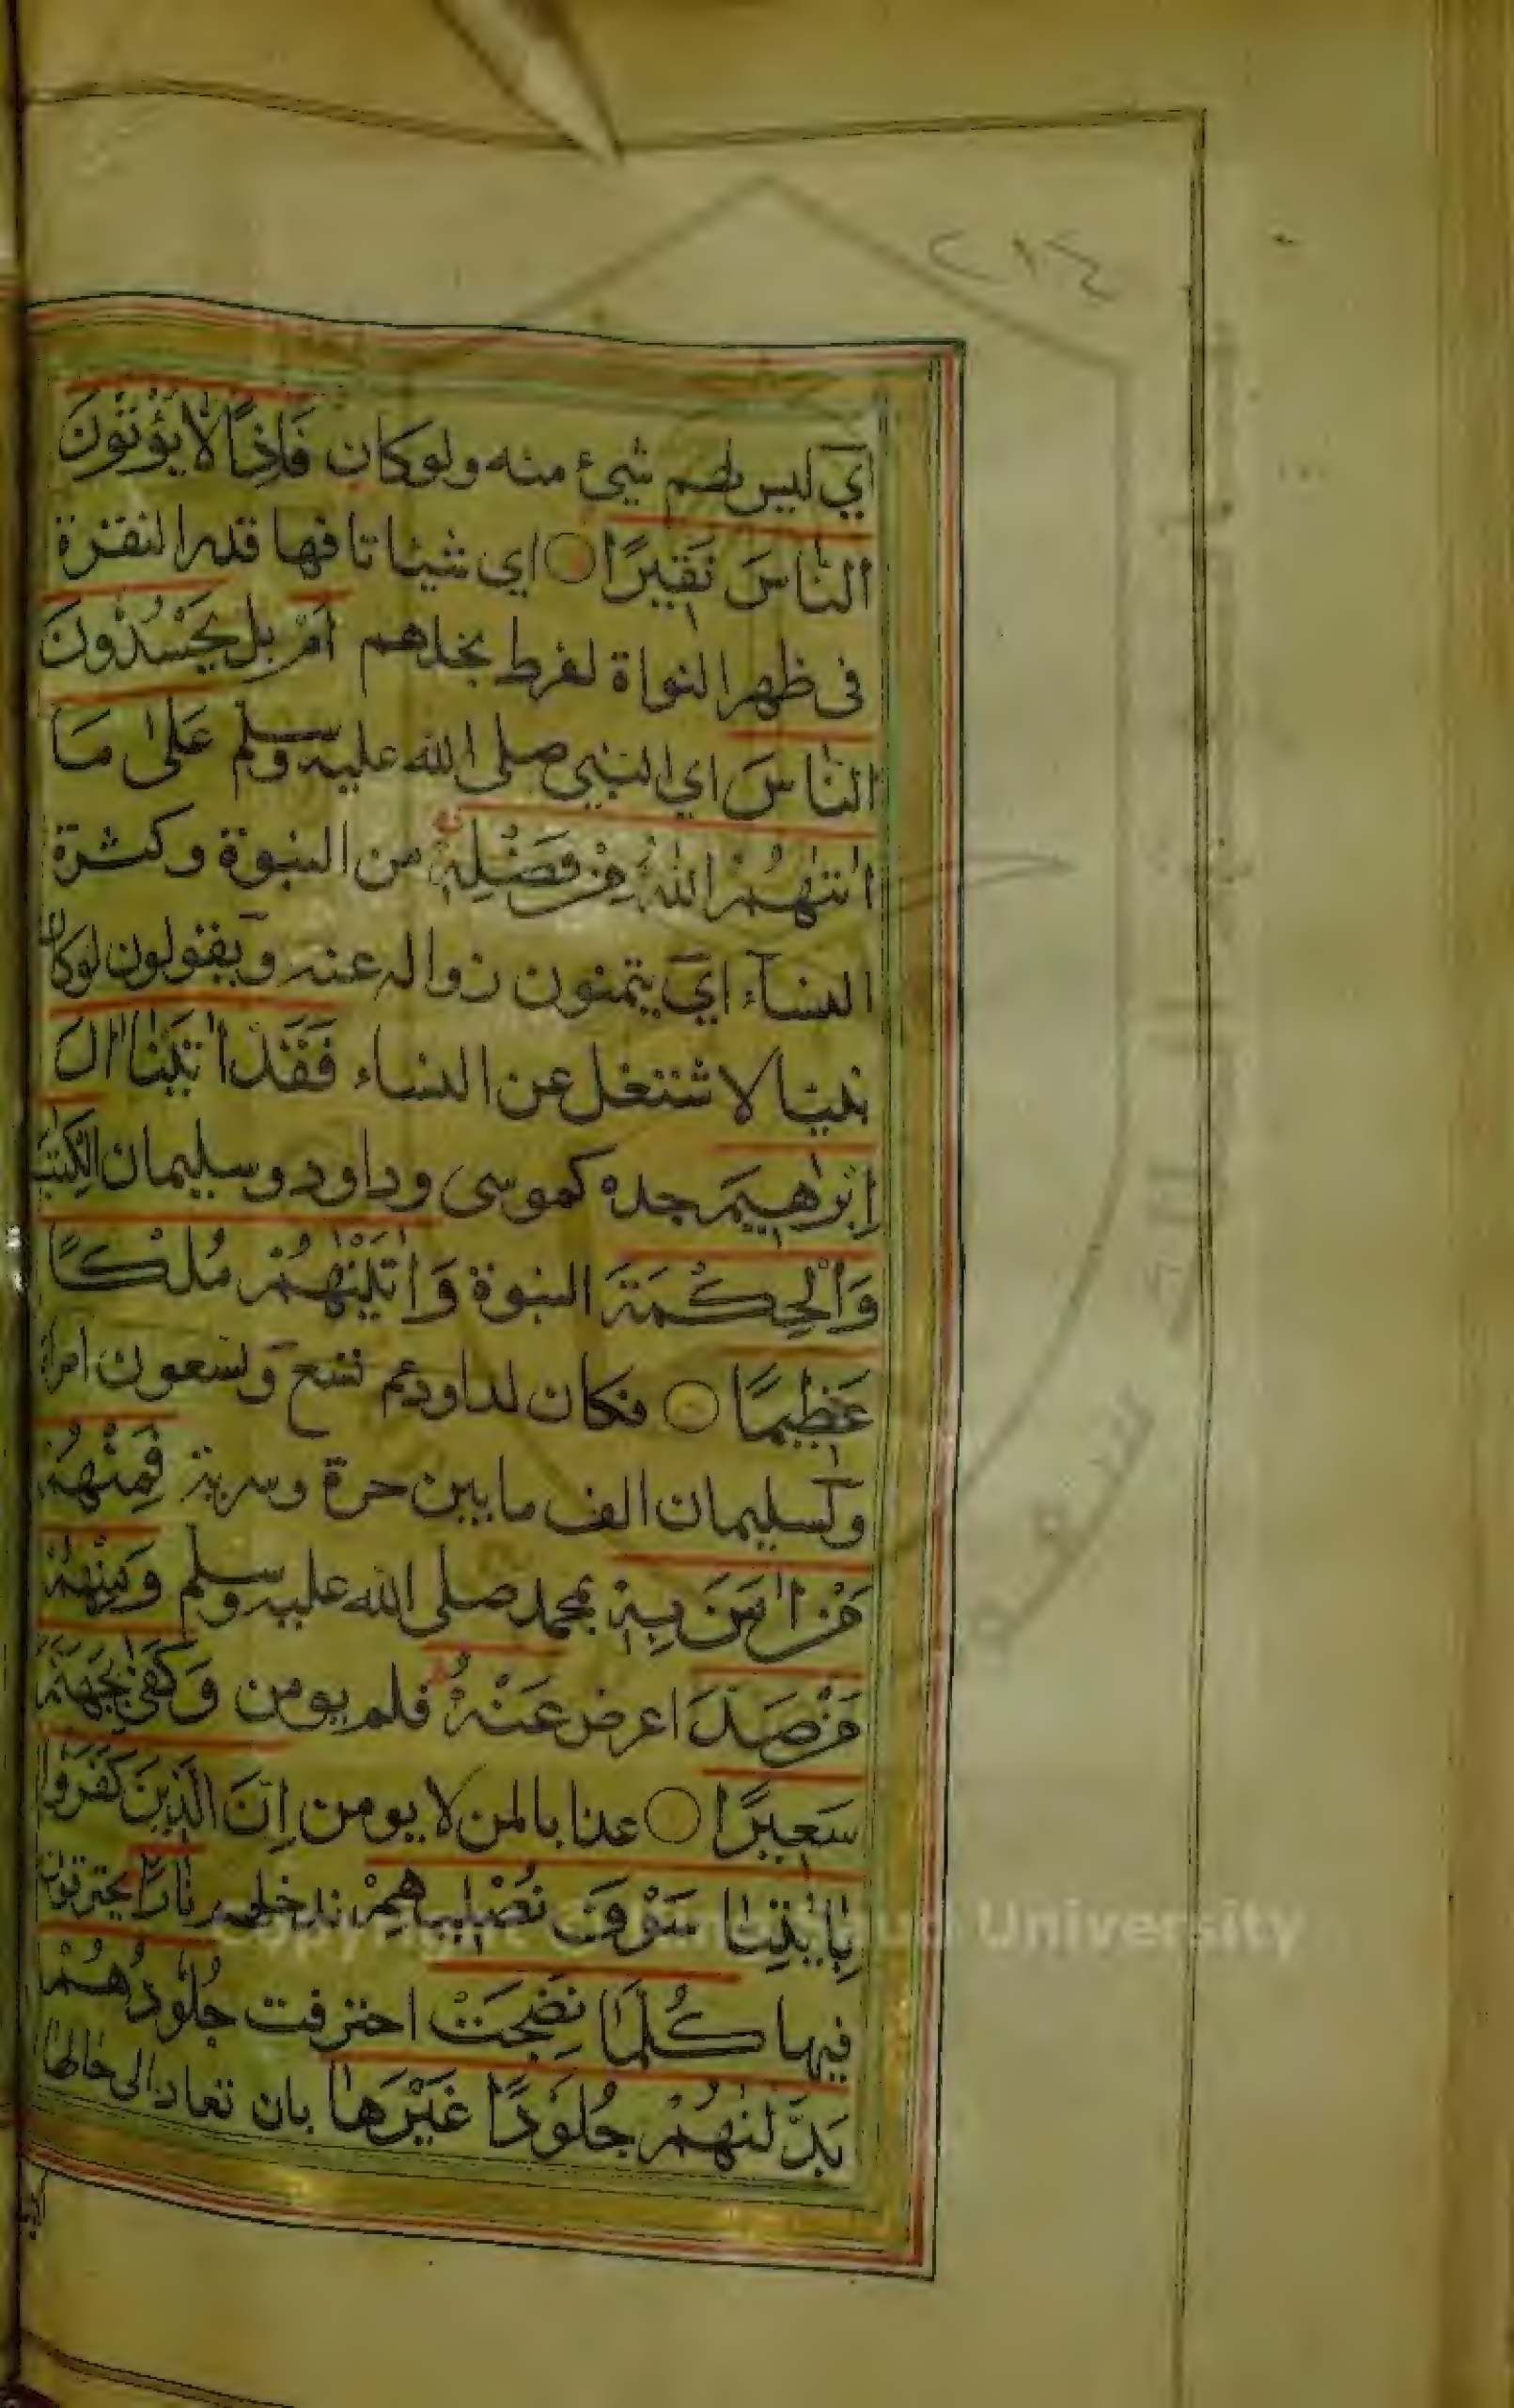 ٢١٤
اي ليس لهم شيئ منه ولو كان فَاِذًا لَا يُؤْتُوْنَ
النَّاسَ نَقِيْرًا اي شيئا تافها قدر النقرة
فى ظهر النواة لفرط بخلهم اَمْ بل يَحْسُدُوْنَ
النَّاسَ اي النبي صلى الله عليه وسلم عَلٰى مَا
اٰتٰىهُمُ اللّٰهُ مِنْ فَضْلِهٖ من النبوة وكثرة
النساء اي يتمنون زواله عنه ويقولون لو كان
نبيا لاشتغل عن النساء فَقَدْ اٰتَيْنَا اٰلَ
اِبْرٰهِيْمَ جده كموسى وداود وسليمان الْكِتٰبَ
وَالْحِكْمَةَ النبوة وَاٰتَيْنٰهُمْ مُلْكًا
عَظِيْمًا فكان لداود عم تسع وتسعون امراة
ولسليمان الف ما بين حرة وسرية فَمِنْهُمْ
مَنْ اٰمَنَ بِهٖ بمحمد صلى الله عليه وسلم وَمِنْهُمْ
مَنْ صَدَّ اعرض عَنْهُ فلم يومن وَكَفٰى بِجَهَنَّمَ
سَعِيْرًا عذابا لمن لا يومن اِنَّ الَّذِيْنَ كَفَرُوْا
بِاٰيٰتِنَا سَوْفَ نُصْلِيْهِمْ ندخلهم نَارًا يحترقون
فيها كُلَّمَا نَضِجَتْ احترقت جُلُوْدُهُمْ
بَدَّلْنٰهُمْ جُلُوْدًا غَيْرَهَا بان تعاد الى حالها
Copyright © King Saud University